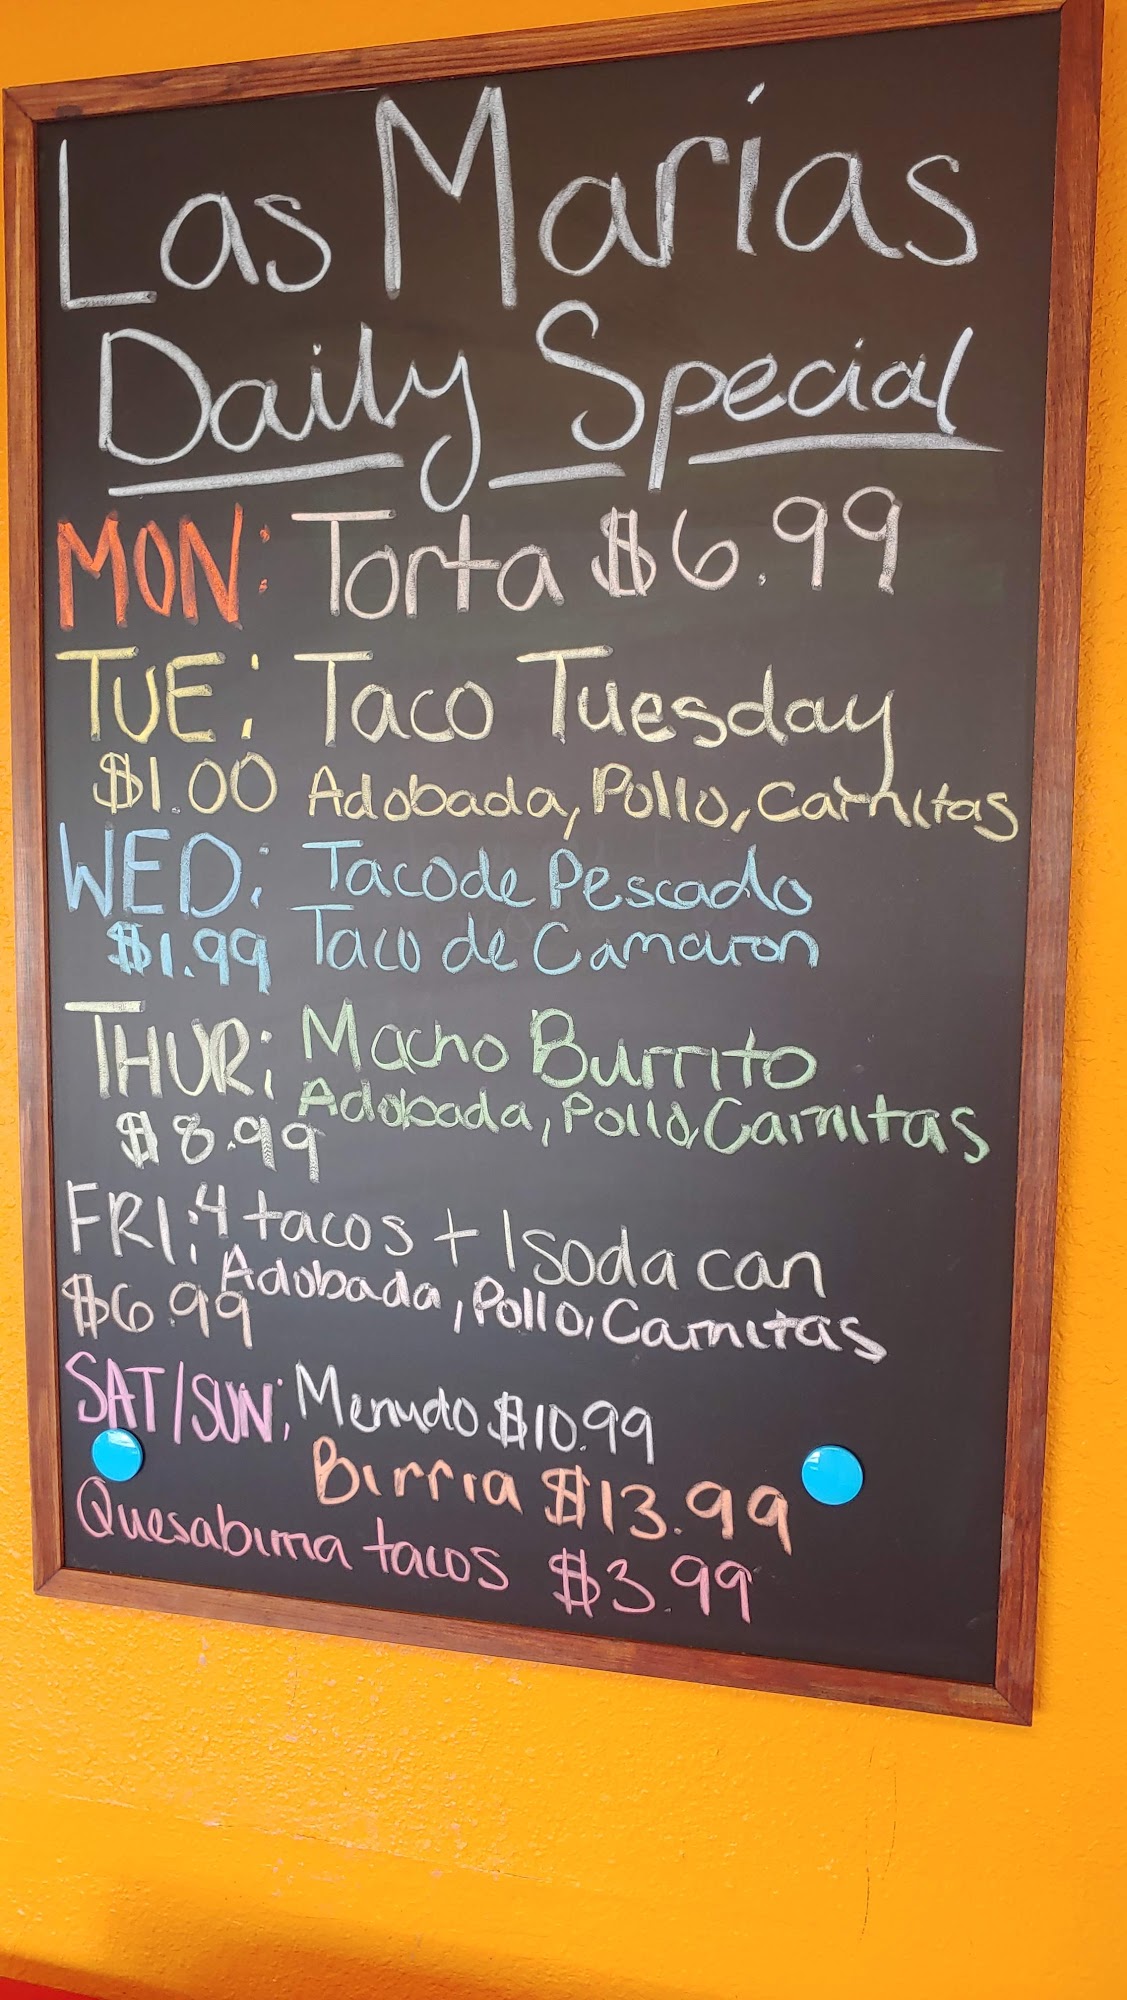 Las Marias
Daily Special
MON: Torta $6.99
TUE: Taco Tuesday
$1.00 Adobada, Pollo, Carnitas
WED: Taco de Pescado
$1.99 Taco de Camaron
THUR: Macho Burrito
Adobada, Pollo, Carnitas
$8.99
FRI: 4 tacos + 1 soda can
Adobada, Pollo, Carnitas
$6.99
SAT/SUN: Menudo $10.99
Birria $13.99
Quesabirria tacos $3.99